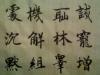 誡寵增
耻林皐
機解組
處沉默